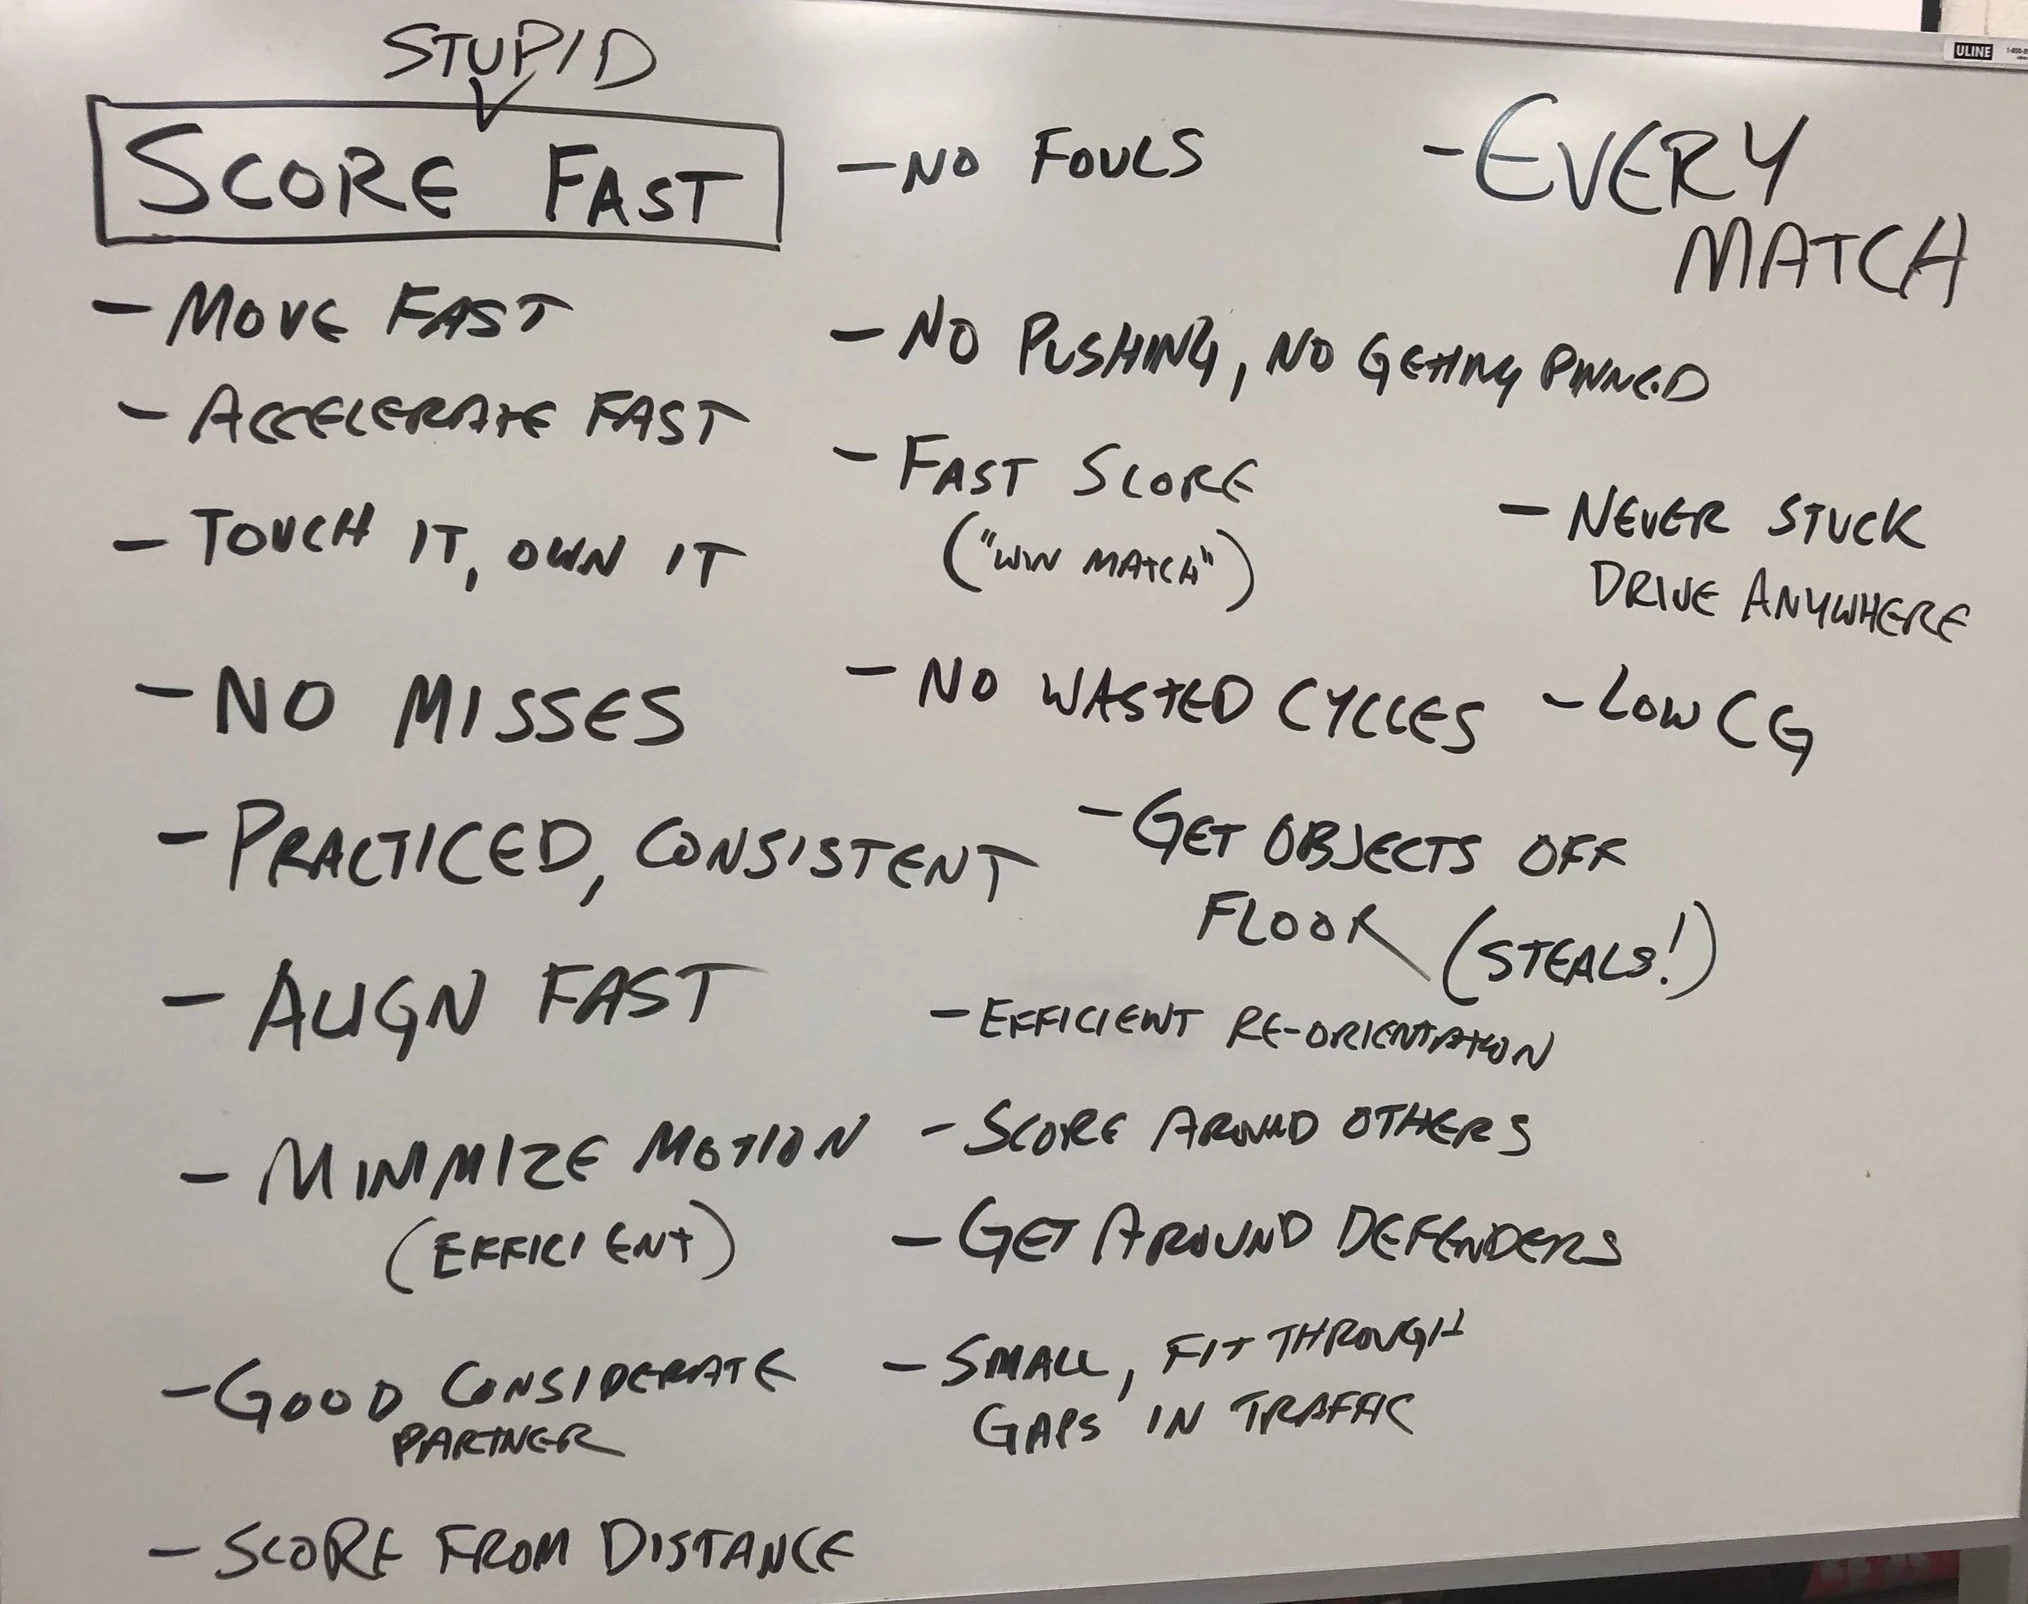 STUPID
SCORE FAST
- MOVE FAST
- ACCELERATE FAST
- TOUCH IT, OWN IT
- NO MISSES
- PRACTICED, CONSISTENT
- ALIGN FAST
- MINIMIZE MOTION
(EFFICIENT)
- GOOD CONSIDERATE
PARTNER
- SCORE FROM DISTANCE
- NO FOULS
- NO PUSHING, NO GETTING PINNED
- FAST SCORE
("WIN MATCH")
- NO WASTED CYCLES
- GET OBJECTS OFF
FLOOR (STEALS!)
- EFFICIENT RE-ORIENTATION
- SCORE AROUND OTHERS
- GET AROUND DEFENDERS
- SMALL, FIT THROUGH
GAPS IN TRAFFIC
- EVERY
MATCH
- NEVER STUCK
DRIVE ANYWHERE
- LOW CG
ULINE